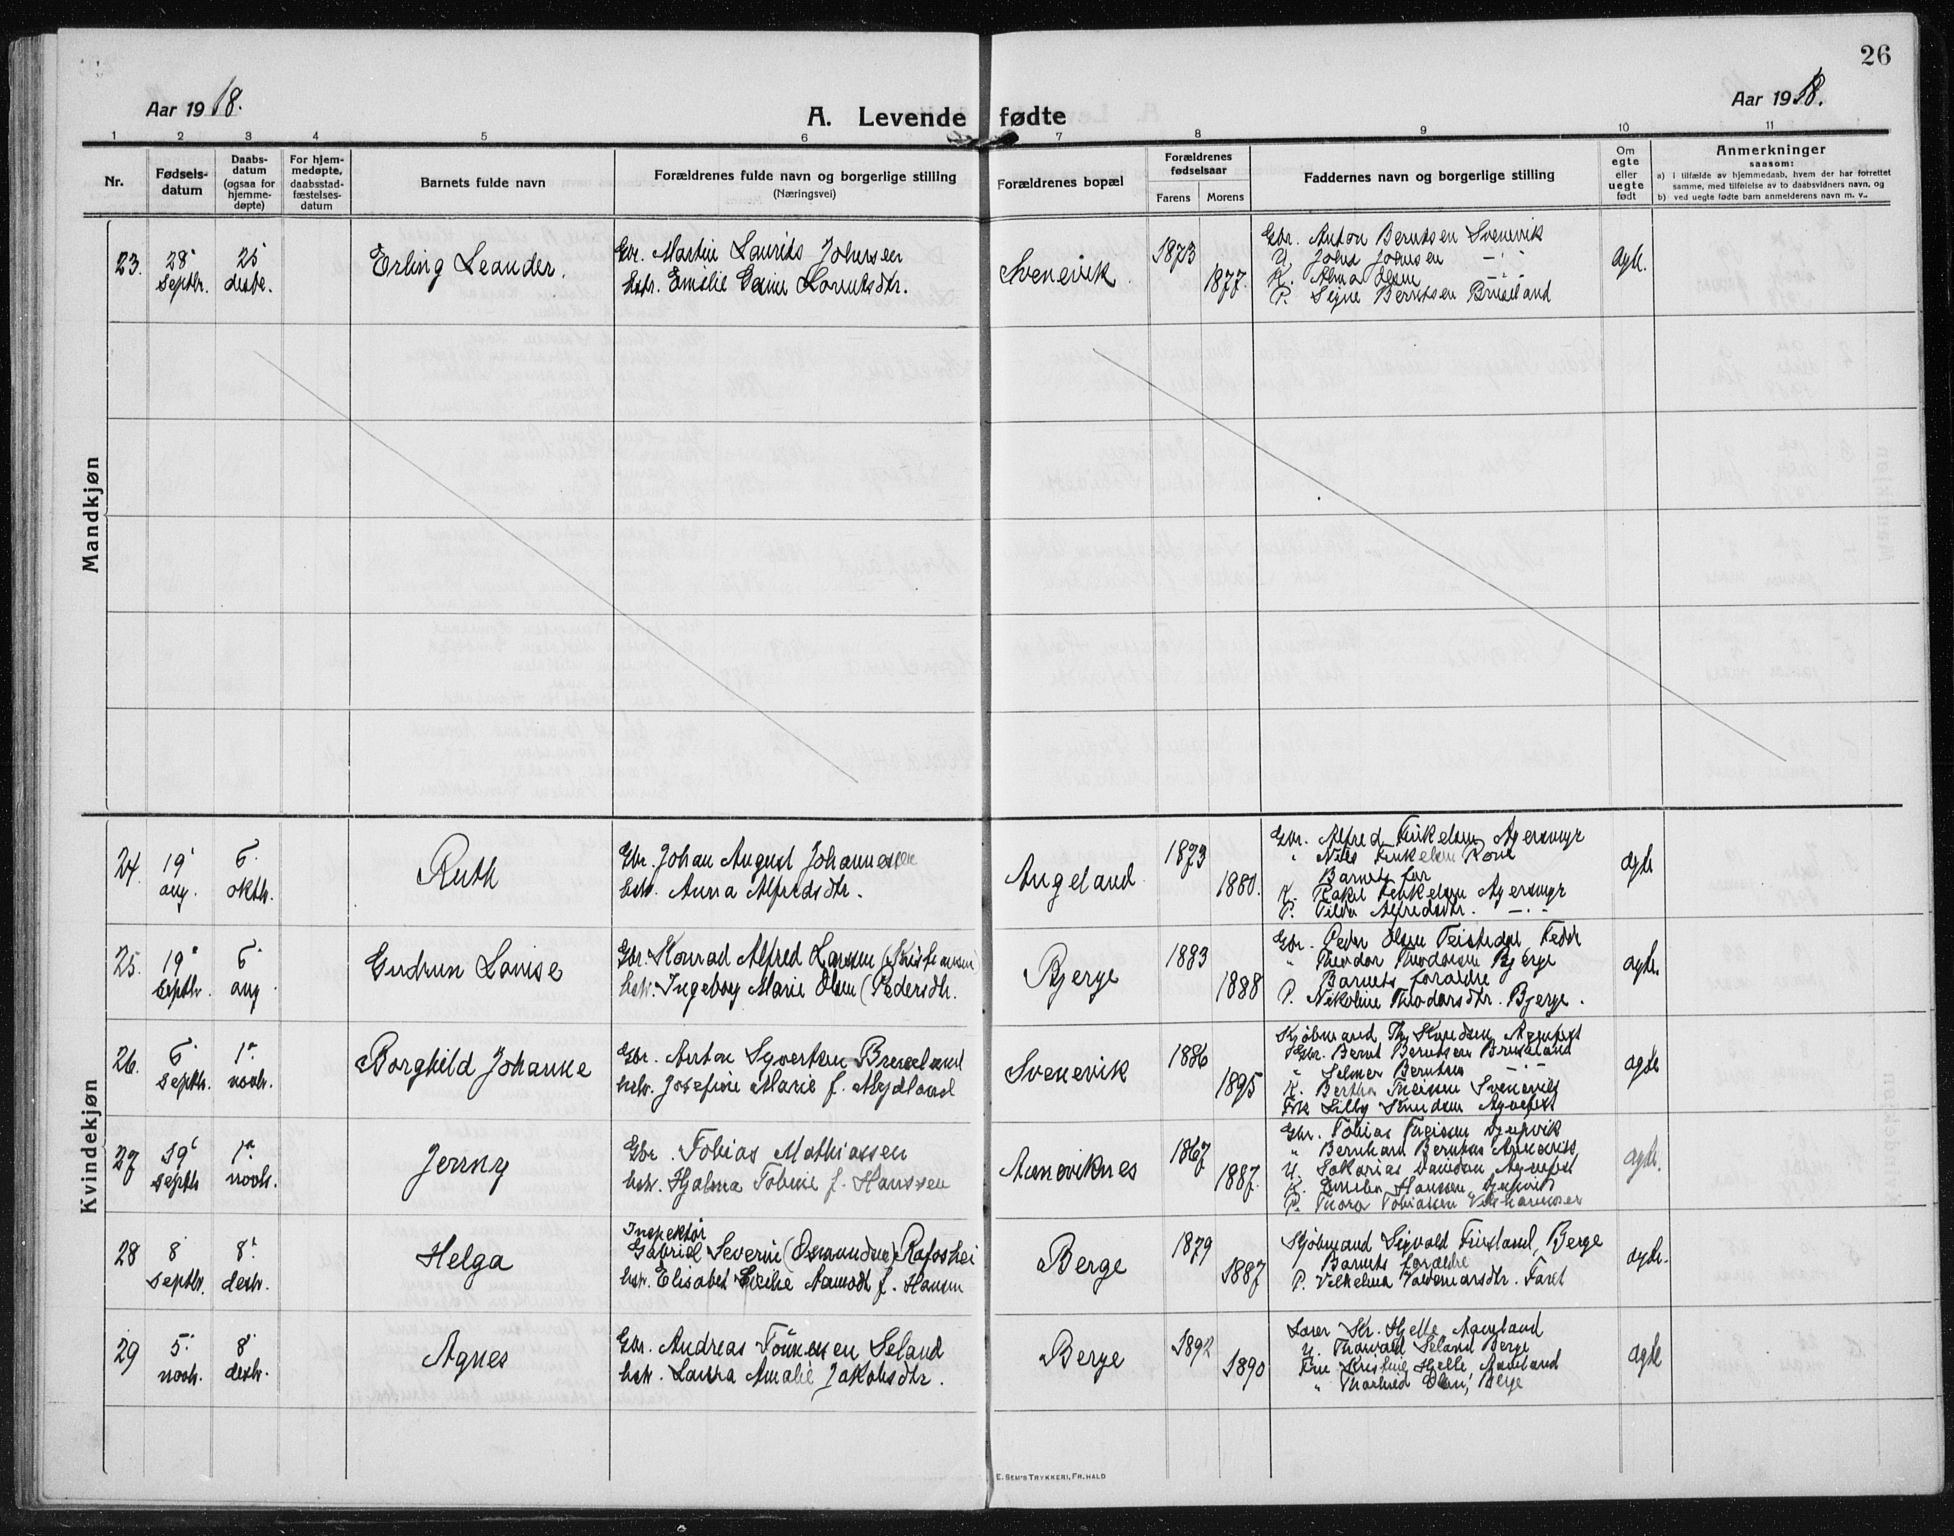 26
Aar 1918.
A. Levende fødte
Aar 1918.
1 2 3 4 5 6 7 8 9 10 11
Nr.
Fødsels-
datum
Daabs-
datum
(ogsaa for
hjemme-
døpte)
For hjem-
medøpte,
daabsstad-
fæstelses-
datum
Barnets fulde navn
Forældrenes fulde navn og borgerlige stilling
(Næringsvei)
Forældrenes bopæl
Forældrenes
fødselsaar
Farens Morens
Faddernes navn og borgerlige stilling
Om
egte
eller
uegte
født
Anmerkninger
saasom:
a) i tilfælde av hjemmedaab, hvem der har forrettet
samme, med tilføielse av to daabsvidners navn, og
b) ved uegte fødte barn anmelderens navn m. v..
Mandkjøn
23.
28
septbr.
25
desbr.
Erling Leander.
Gbr. Martin Laurits Johnsen
hstr. Emilie
Svenevik
1873
1877.
Gbr. Anton Berntsen Svenevik
U. John Johnsen — " —
K. Alma Olsen — " —
P. Signe Berntsen Bruseland
egte.
Kvindekjøn
24.
19
aug.
6.
oktbr.
Ruth
Gbr. Johan August Johannessen
hstr. Anna Alfredsdtr.
Angeland
1873
1880.
Gbr. Alfred Terkelsen
" Nils Terkelsen
Barnets far
K. Rakel Terkelsen
P. Tilda Alfredsdtr. — " —
egte
25.
19
septbr.
6.
aug
Gudrun Lovise
Gbr. Konrad Alfred Larsen (Kristiansen)
hstr. Ingeborg Marie Olsen (Pedersdtr.
Bjerge
1883
1888
Gbr. Peder Olsen
" Theodor Theodorsen Bjerge
Barnets forældre
P. Nikoline Theodorsdtr. Bjerge.
egte.
26.
6.
septbr.
1.
novbr.
Borghild Johanne
Gbr. Anton Syvertsen Bruseland
hstr. Josefine Marie f. Mydland
Svenevik
1886
1895
Kjøbmand Th. Knudsen
Gbr. Bernt Berntsen Bruseland
" Selmer Berntsen — " —
K. Bertha Theisen Svenevik
Frk Lilly Knudsen
egte
27
29
septbr
1.
novbr.
Jenny
Gbr. Tobias Mathiassen
hstr. Hjalma Tobine f. Hanssen
Aaneviknes
1867
1887.
Gbr. Tobias Theisen
" Bernhard Berntsen
U. Sakarias
K. Emilie Hanssen
P. Thora Tobiassen
egte.
28
8
septbr.
8.
desbr.
Helga
Inspektør
Gabriel Severin (Osmundsen) Rafoshei
hstr. Elisabet Aamodt f. Hansen
Berge
1879
1887
Kjøbmand Sigvald Berge
Barnets forældre
P. Vilhelma Valdemarsdtr. Faret
egte.
29
5.
novbr.
8.
desbr.
Agnes
Gbr. Andreas Tønnessen Seland
hstr. Laura Amalie Jakobsdtr.
Berge
1892
1890
Lærer Kr. Hjelle
U. Thorvald Seland Berge
Fru Kristine Hjelle
" Thorhild Olsen, Berge
egte
E. SEM'S TRYKKERI, FR. HALD